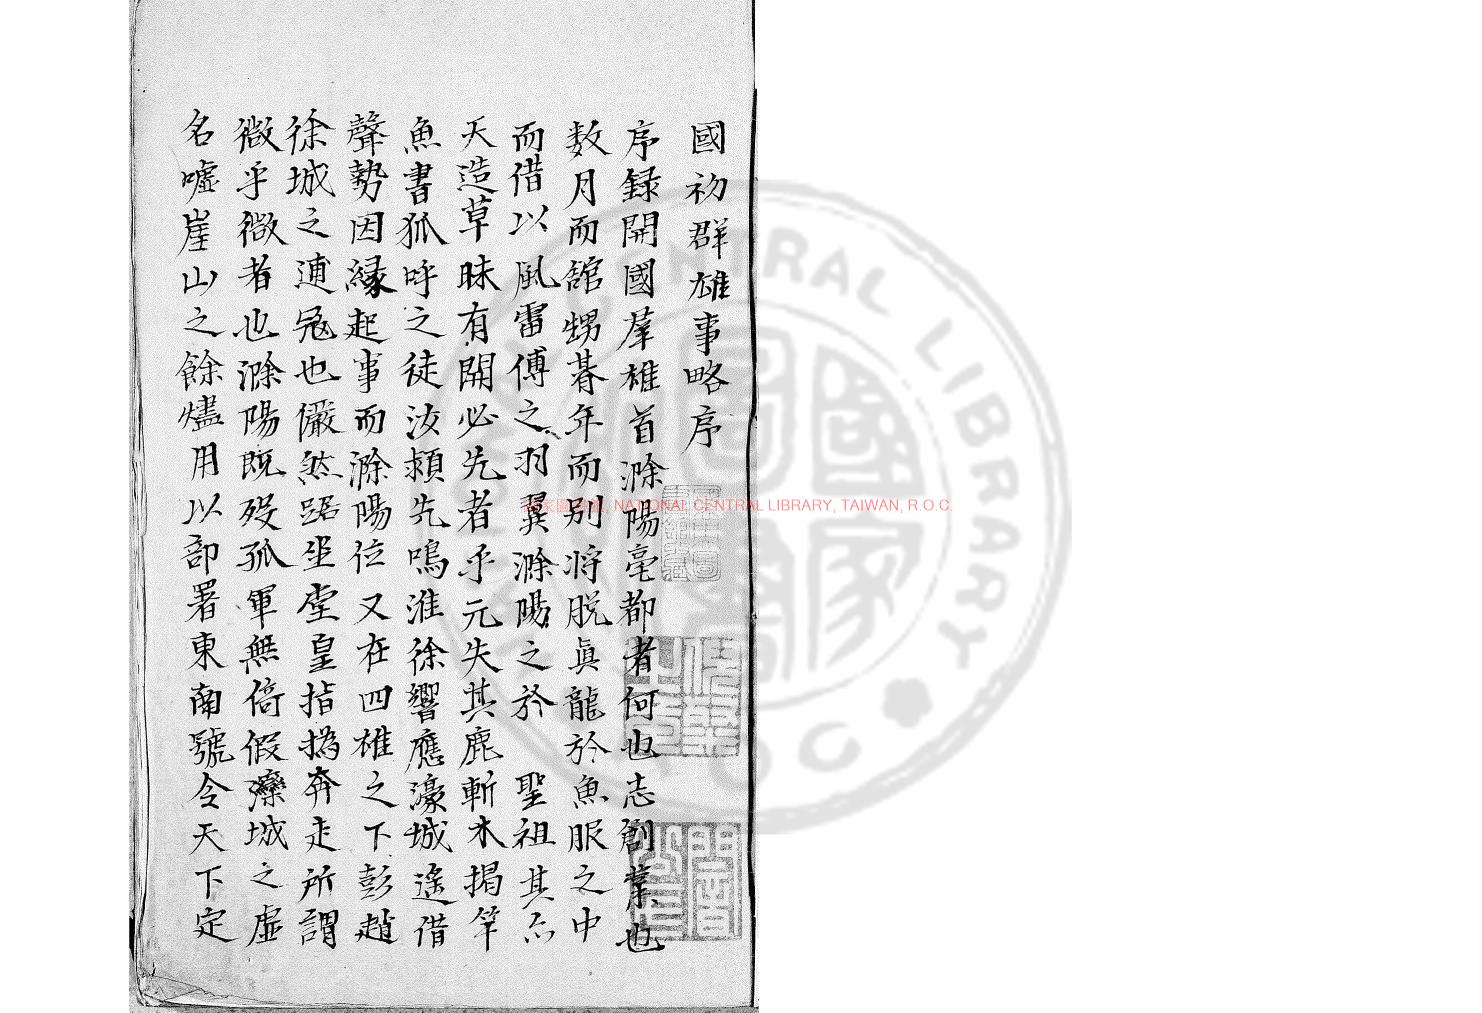 國初群雄事略序
序録開國羣雄首滁陽亳都者何也志創業也
数月而舘甥朞年而別将脱眞龍於魚服之中
而借以風雷傅之羽翼滁陽之於 聖祖其尒
天造草昧有開必先者乎元失其鹿斬木揭竿
魚書狐呼之徒汝潁先鳴淮徐響應濠城遙借
聲勢因縁起事而滁陽位又在四雄之下彭趙
徐城之逋冦也儼然踞坐堂皇指撝奔走所謂
微乎微者也滁陽既歿孤軍無倚假濠城之虛
名嘘崖山之餘燼用以部署東南號令天下定
NATIONAL CENTRAL LIBRARY, TAIWAN, R.O.C.